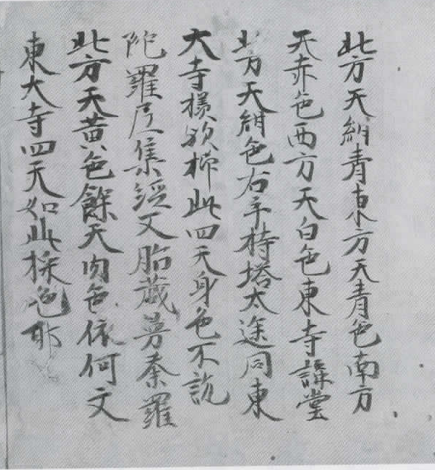 北方天紺青東方天青色南方
天赤色西方天白色東寺講堂
北方天紺色右手持塔太途同東
大寺様歟抑此四天身色不説
陀羅尼集経又胎蔵曼荼羅
北方天黄色餘天肉色依何文
東大寺四天如此採色耶